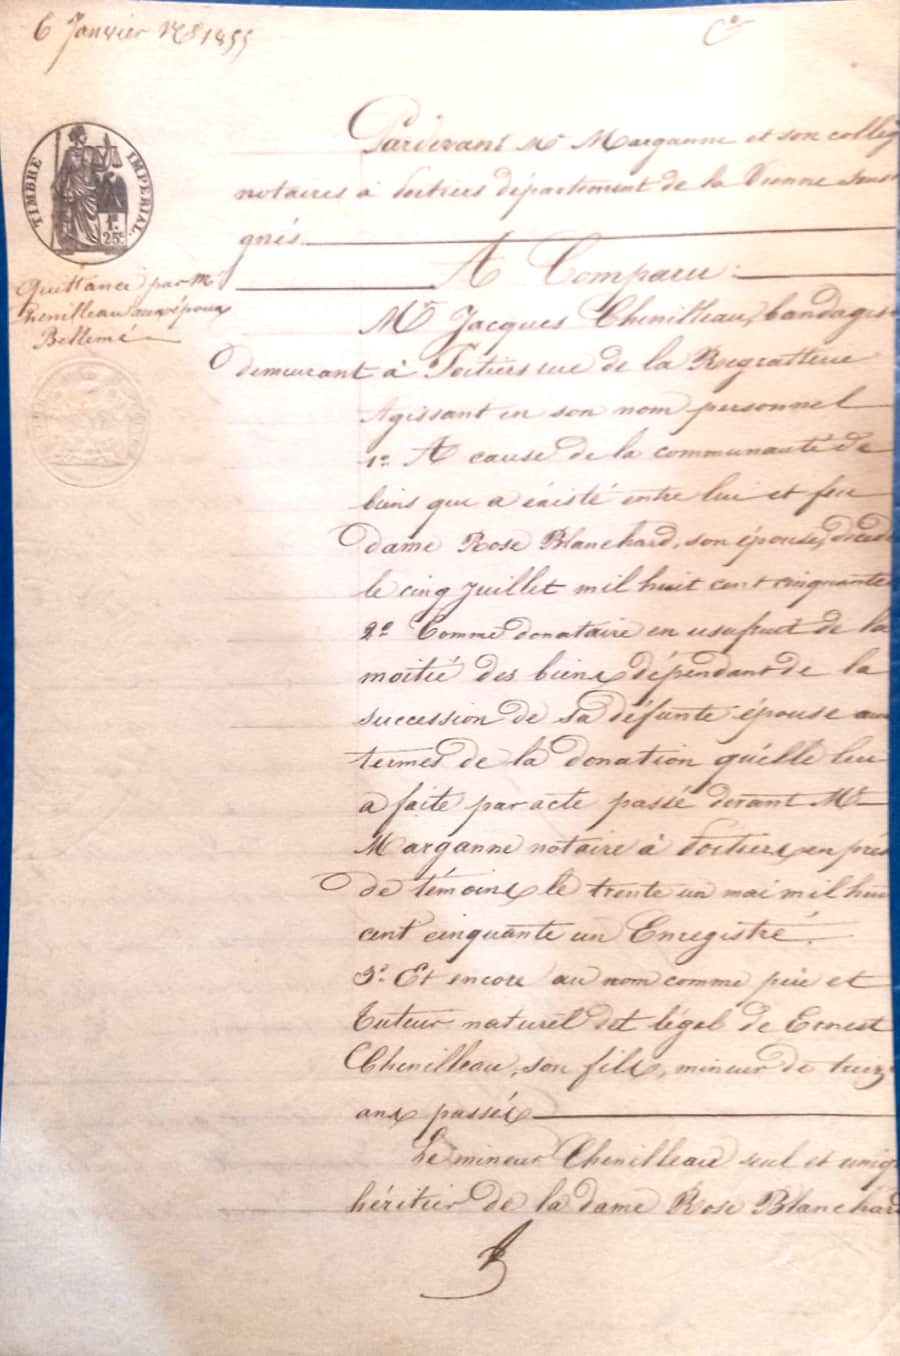 6 Janvier 1855
Ce
TIMBRE IMPERIAL.
1f.
25c.
Quittance par Mr
Chenilleau aux époux
Bellemé
Pardevant Me Marganne et son collèg
notaires à Poitiers département de la Vienne sous
gnés
A Comparu :
Mr Jacques Chenilleau, bandagis
demeurant à Poitiers rue de la Regratterie
Agissant en son nom personnel
1º A cause de la communauté de
biens qui a éxisté entre lui et feu
dame Rose Blanchard, son épouse, décéd
le cinq Juillet mil huit cent cinquante
2º Comme donataire en usufruit de la
moitié des biens dépendant de la
succession de sa défunte épouse aux
termes de la donation qu'elle lui
a faite par acte passé devant Me
Marganne notaire à Poitiers, en prés
de témoins, le trente un mai mil hui
cent cinquante un Enregistré.
3º Et encore au nom comme père et
tuteur naturel et légal de Ernest
Chenilleau, son fils, mineur de treiz
ans passés
Le mineur Chenilleau seul et uniq
héritier de la dame Rose Blanchard